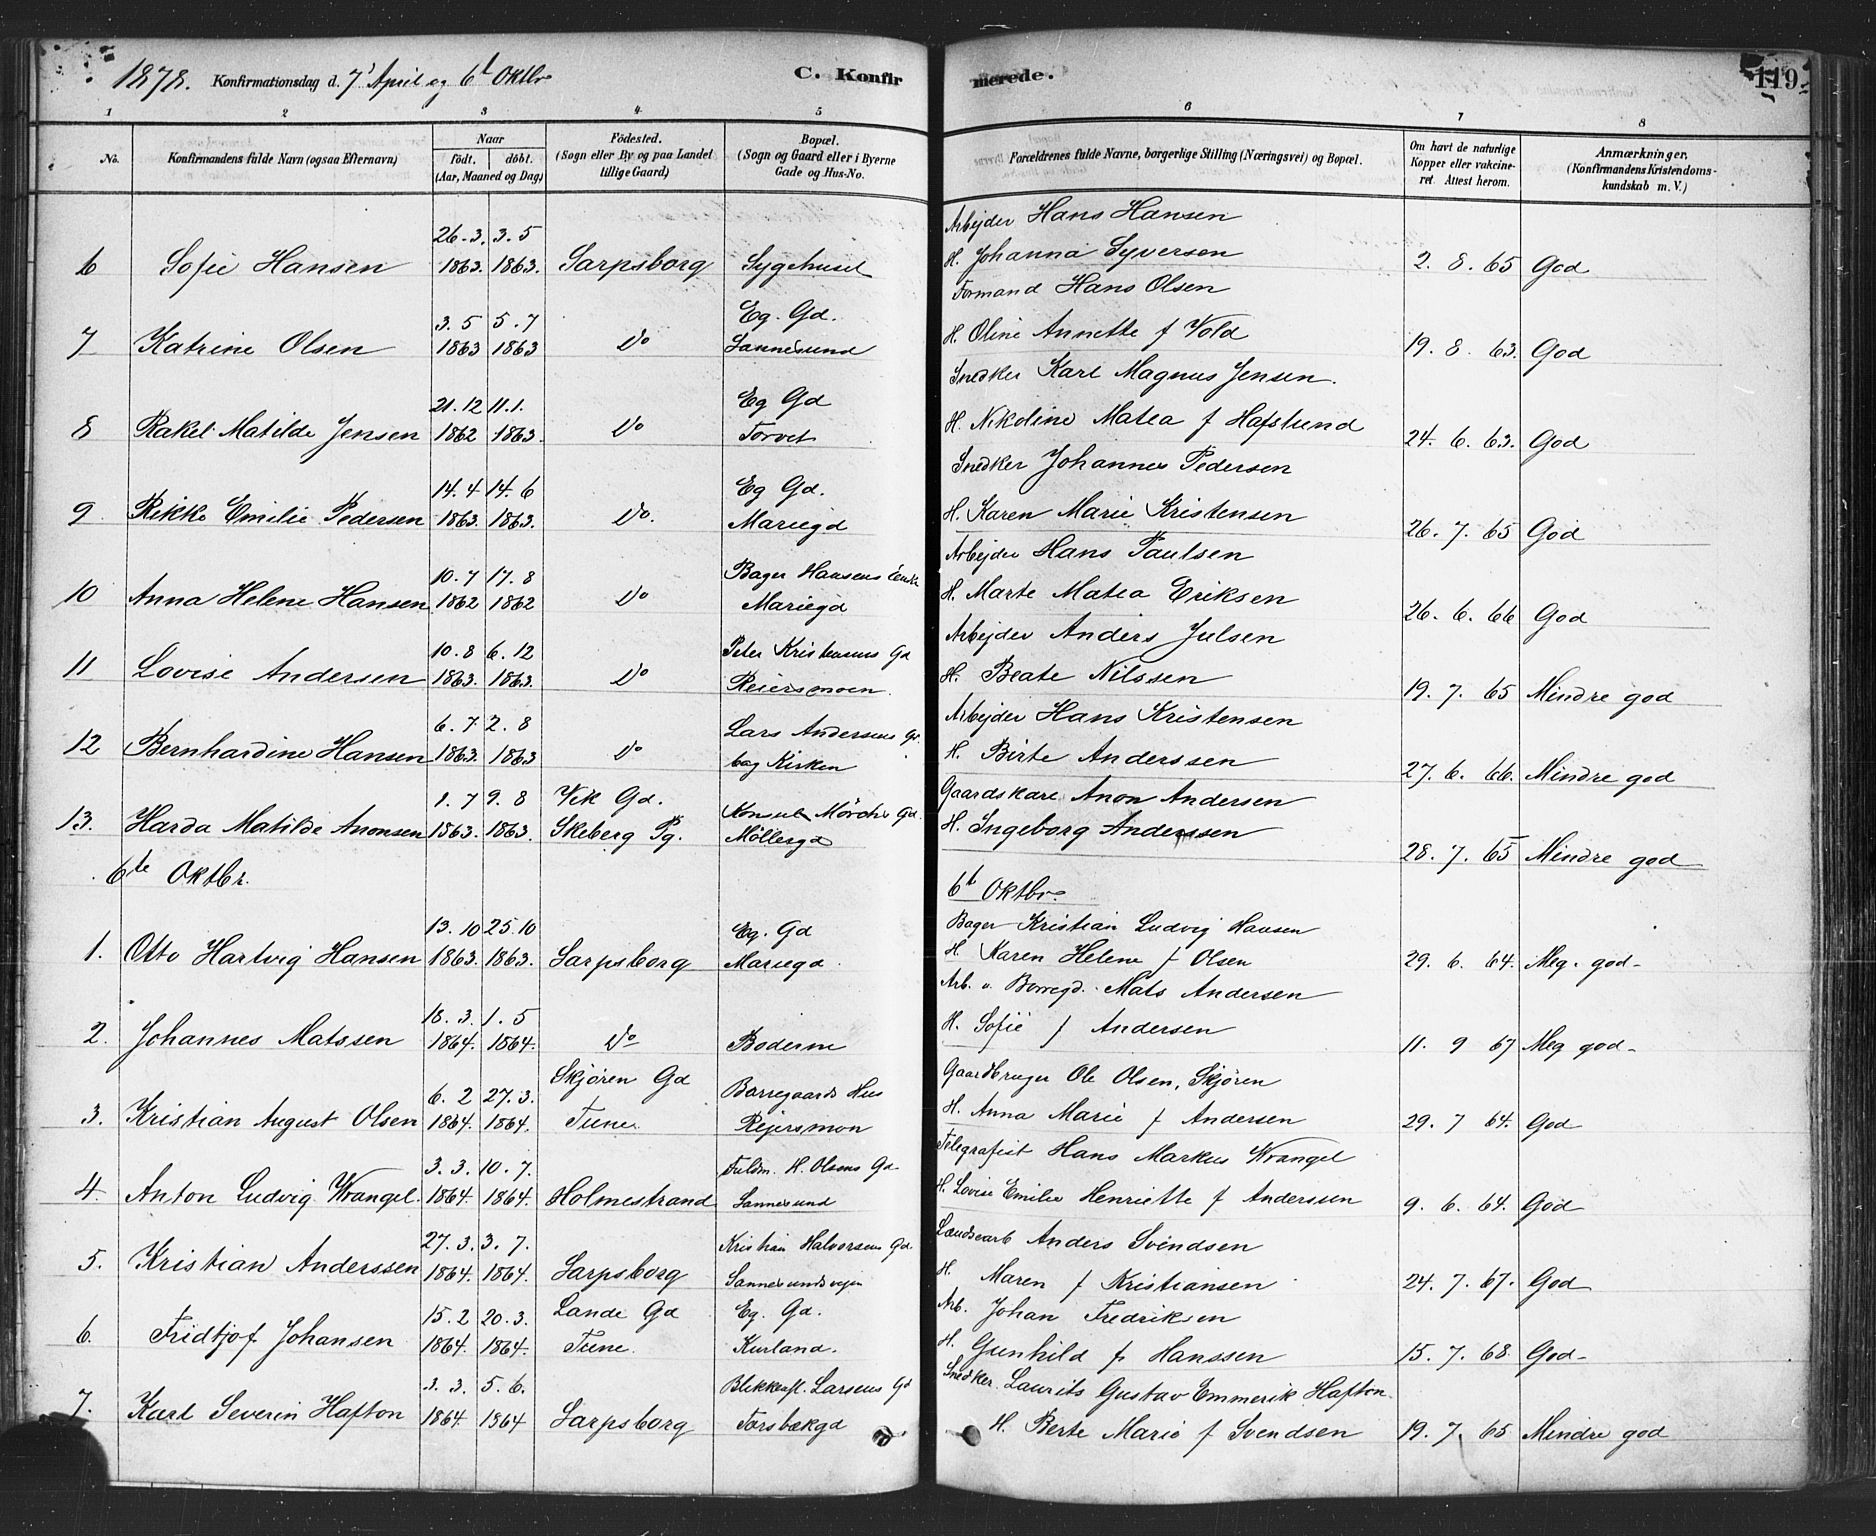 1878. Konfirmationsdag d. 7' April og 6t Oktbr C. Konfirmerede. 119
1 2 3 4 5 6 7 8
No. Konfirmandens fulde Navn (ogsaa Efternavn) Naar født. døbt. (Aar, Maaned og Dag) Fødested. (Sogn eller By og paa Landet tillige Gaard) Bopæl. (Sogn og Gaard eller i Byerne Gade og Hus-No. Forældrenes fulde Navne, borgerlige Stilling (Næringsvei) og Bopæl. Om havt de naturlige Kopper eller vakcineret. Attest herom. Anmærkninger. (Konfirmandens Kristendomskundskab m. V.)
26.3. 3.5 Arbejder Hans Hansen
6 Sofie Hansen 1863. 1863. Sarpsborg Sygehuset H. Johanna Syversen 2. 8. 65 God
3.5 5.7 Eg. Gd. Formand Hans Olsen
7 Katrine Olsen 1863 1863 Do Sannesund H. Oline Annette f Vold 19. 8. 63. God
21.12 11.1. Eg Gd Snedker Karl Magnus Jensen.
8 Rakel Matilde Jensen 1862 1863. Do Torvet H. Nikoline Matea f Hafslund 24. 6. 63. God
14.4 14.6 Eg Gd. Snedker Johannes Pedersen
9 Rikke Emilie Pedersen 1863. 1863. Do. Mariegd H. Karen Marie Kristensen 26. 7. 65 God
10.7 17.8 Bager Hansens Arbejder Hans Paulsen
10 Anna Helene Hansen 1862 1862 Do Mariegd H. Marte Matea Eriksen 26. 6. 66 God
10.8 6.12 Peter Kristensens Gd Arbejder Anders Julsen
11 Lovise Andersen 1863. 1863. Do Reiersmoen. H. Beate Nilssen 19. 7. 65 Mindre god
6.7 2.8 Lars Andersens Gd. Arbejder Hans Kristensen
12 Bernhardine Hansen 1863. 1863 Do bag Kirken H. Birte Anderssen 27. 6. 66. Mindre god
1.7 9.8 Vik Gd. Konsul Mörchs Gd. Gaardskare Anon Andersen
13. Harda Matilde Anonsen 1863. 1863. Skeberg Pg. Møllergd H. Ingeborg Anderssen 28. 7. 65 Mindre god
6te Oktbr. 6t Oktbr.
13.10 25.10 Eg. Gd Bager Kristian Ludvig Hansen
1. Otto Hartvig Hansen 1863. 1863. Sarpsborg Mariegd. H. Karen Helene f Olsen 29. 6. 64. Meg. god-
18.3. 1.5 Arb. v. Borregd. Mats Andersen
2. Johannes Matssen 1864. 1864. Do Boderne H. Sofie f Andersen 11. 9 67 Meg god-
6.2 27.3. Skjøren Gd Borregaards Hus Gaardbruger Ole Olsen, Skjøren
3. Kristian August Olsen 1864. 1864. Tune. Rejersmon H. Anna Marie f Andersen 29. 7 64. God
3.3. 10.7. Fuldm. H. Olsens Gd Telegrafist Hans Markus Wrangel
4 Anton Ludvig Wrangel. 1864 1864. Holmestrand Sannesund H. Lovise Emilie Henriette f Anderssen 9. 6. 64. God
27.3. 3.7. Kristian Halvorsens Gd. Landsearb Anders Svendsen
5. Kristian Anderssen 1864. 1864. Sarpsborg Sannesundsvejen H. Maren f Kristiansen 24. 7. 67. God
15.2 20.3. Lande Gd Eg. Gd. Arb. Johan Fredriksen
6. Fridtjof Johansen 1864. 1864. Tune. Kurland. H. Gunhild f. Hanssen 15. 7. 68. God-
3.3. 5.6. Blikkensl. Larsens Gd Snedker. Laurits Gustav Emmerik Hafton.
7. Karl Severin Hafton 1864. 1864 Sarpsborg Torsbækgd H. Berte Marie f Svendsen 19. 7. 65 Mindre god